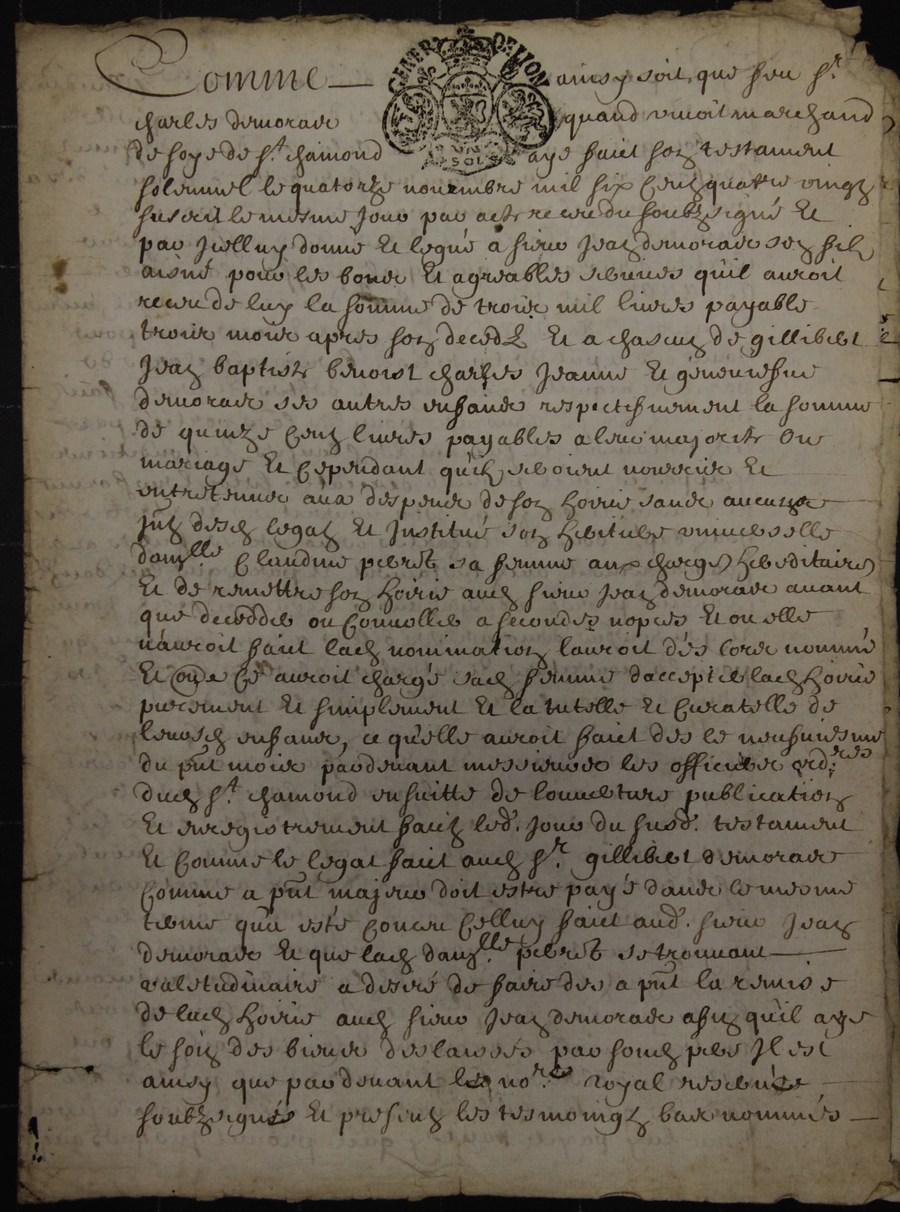 Comme ainsy soit que feu Sr.
GENER DE LYON
charles demorare quand vivoit marchand
UN SOL
de soye de St. chamond aye faict son testament
solemnel le quatorze novembre mil six centz quatre vingz
suscrit le mesme jour par acte receu du soubzsigné Et
par jcelluy donné Et legué a sieur Jean demorare son filz
aisné pour les bons Et agreables services qu'il auroit
receu de luy la somme de trois mil livres payable
trois mois apres son decedz Et a chascun de gillibert
Jean baptiste benoist charles Jeanne Et geneviefve
demorare ses autres enfans respectifvement la somme
de quinze centz livres payables a leur majorité ou
mariage Et cependant qu'ilz seroient nourris Et
entretenus aux despens de son hoirie sans aucungz
jntz desd legatz Et Institué son heritiere universelle
damlle. Claudine peret sa femme aux charges hereditaires
Et de remettre son hoirie aud sieur Jean demorare avant
que decedder ou convoller a secondes nopces Et ou elle
n'auroit faict lad nomination l'auroit dés lors nommé
Et outre ce auroit chargé sad femme d'accepter lad hoirie
purement Et simplement Et la tutelle Et curatelle de
leursd enfans, ce qu'elle auroit faict des le neufviesme
du pnt mois pardevant messieurs les officiers ordres
dud St. chamond ensuitte de l'ouverture publication
Et enregistrement faictz led. jour du susd. testament
Et comme le legat faict aud Sr. gillibert demorare
comme a pnt majeur doit estre payé dans le mesme
terme qu'a esté conceu celluy faict aud. sieur Jean
demorare Et que lad damlle. peret se trouvant
valetudinaire a desiré de faire des a pnt la remise
de lad hoirie aud sieur Jean demorare afin qu'il aye
le soin des biens delaissés par sond pere Il est
ainsy que pardevant le nore royal reservé
soubzsigné Et presentz les tesmoingz bas nommés